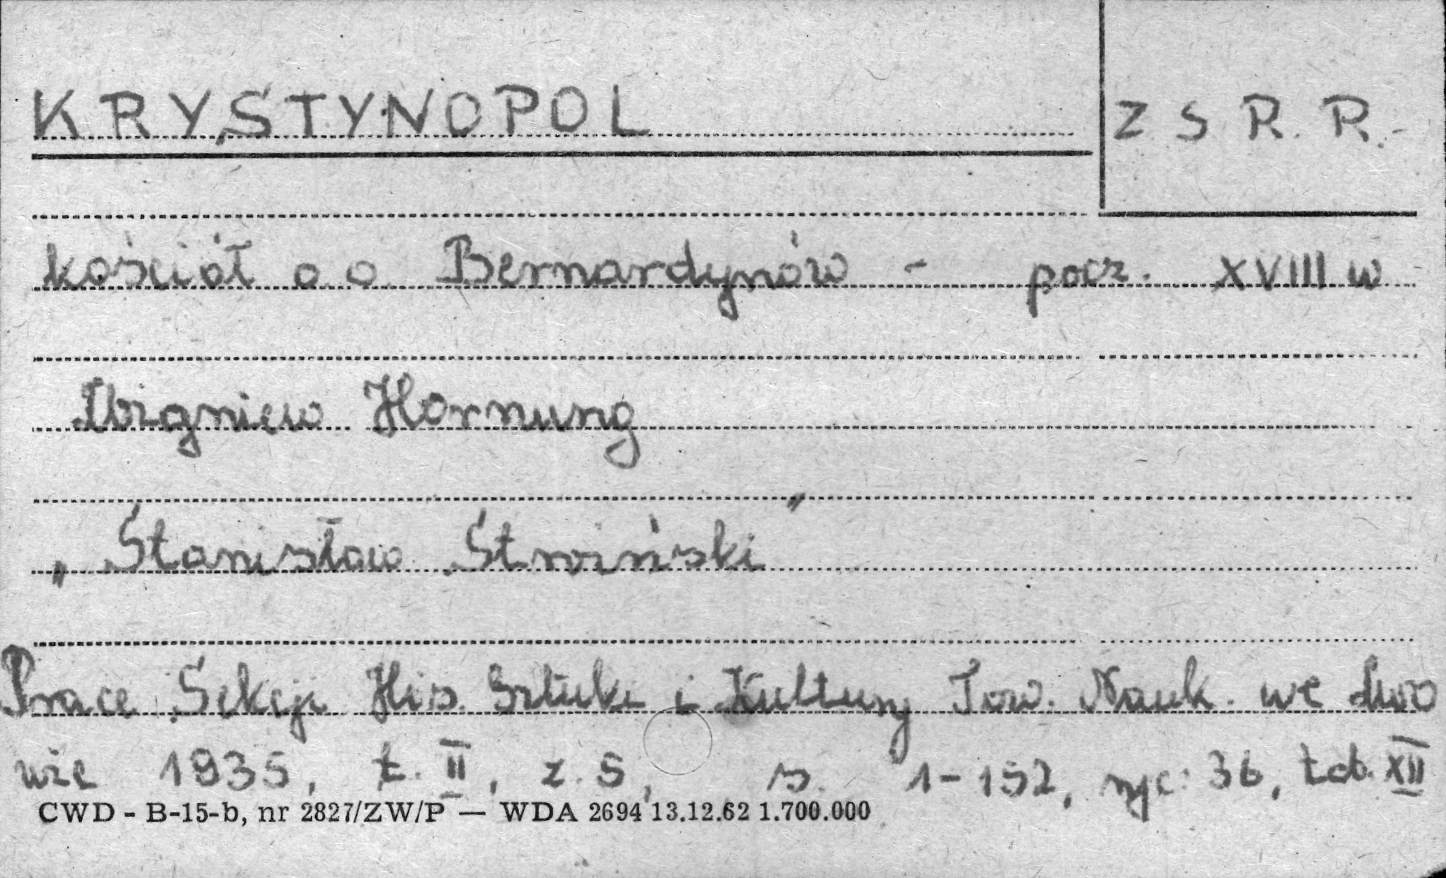 KRYSTYNOPOL
Z S R. R.
kościół o o Bernardynów - pocz. XVIII w
Zbigniew Hornung
„Stanisław Stroiński"
Prace Sekcji His. Sztuki i Kultury Tow. Nauk. we Lwo
wie 1935, t. II, z. 5, s. 1-152, ryc. 36, tab. XII
CWD - B-15-b, nr 2827/ZW/P — WDA 2694 13.12.62 1.700.000